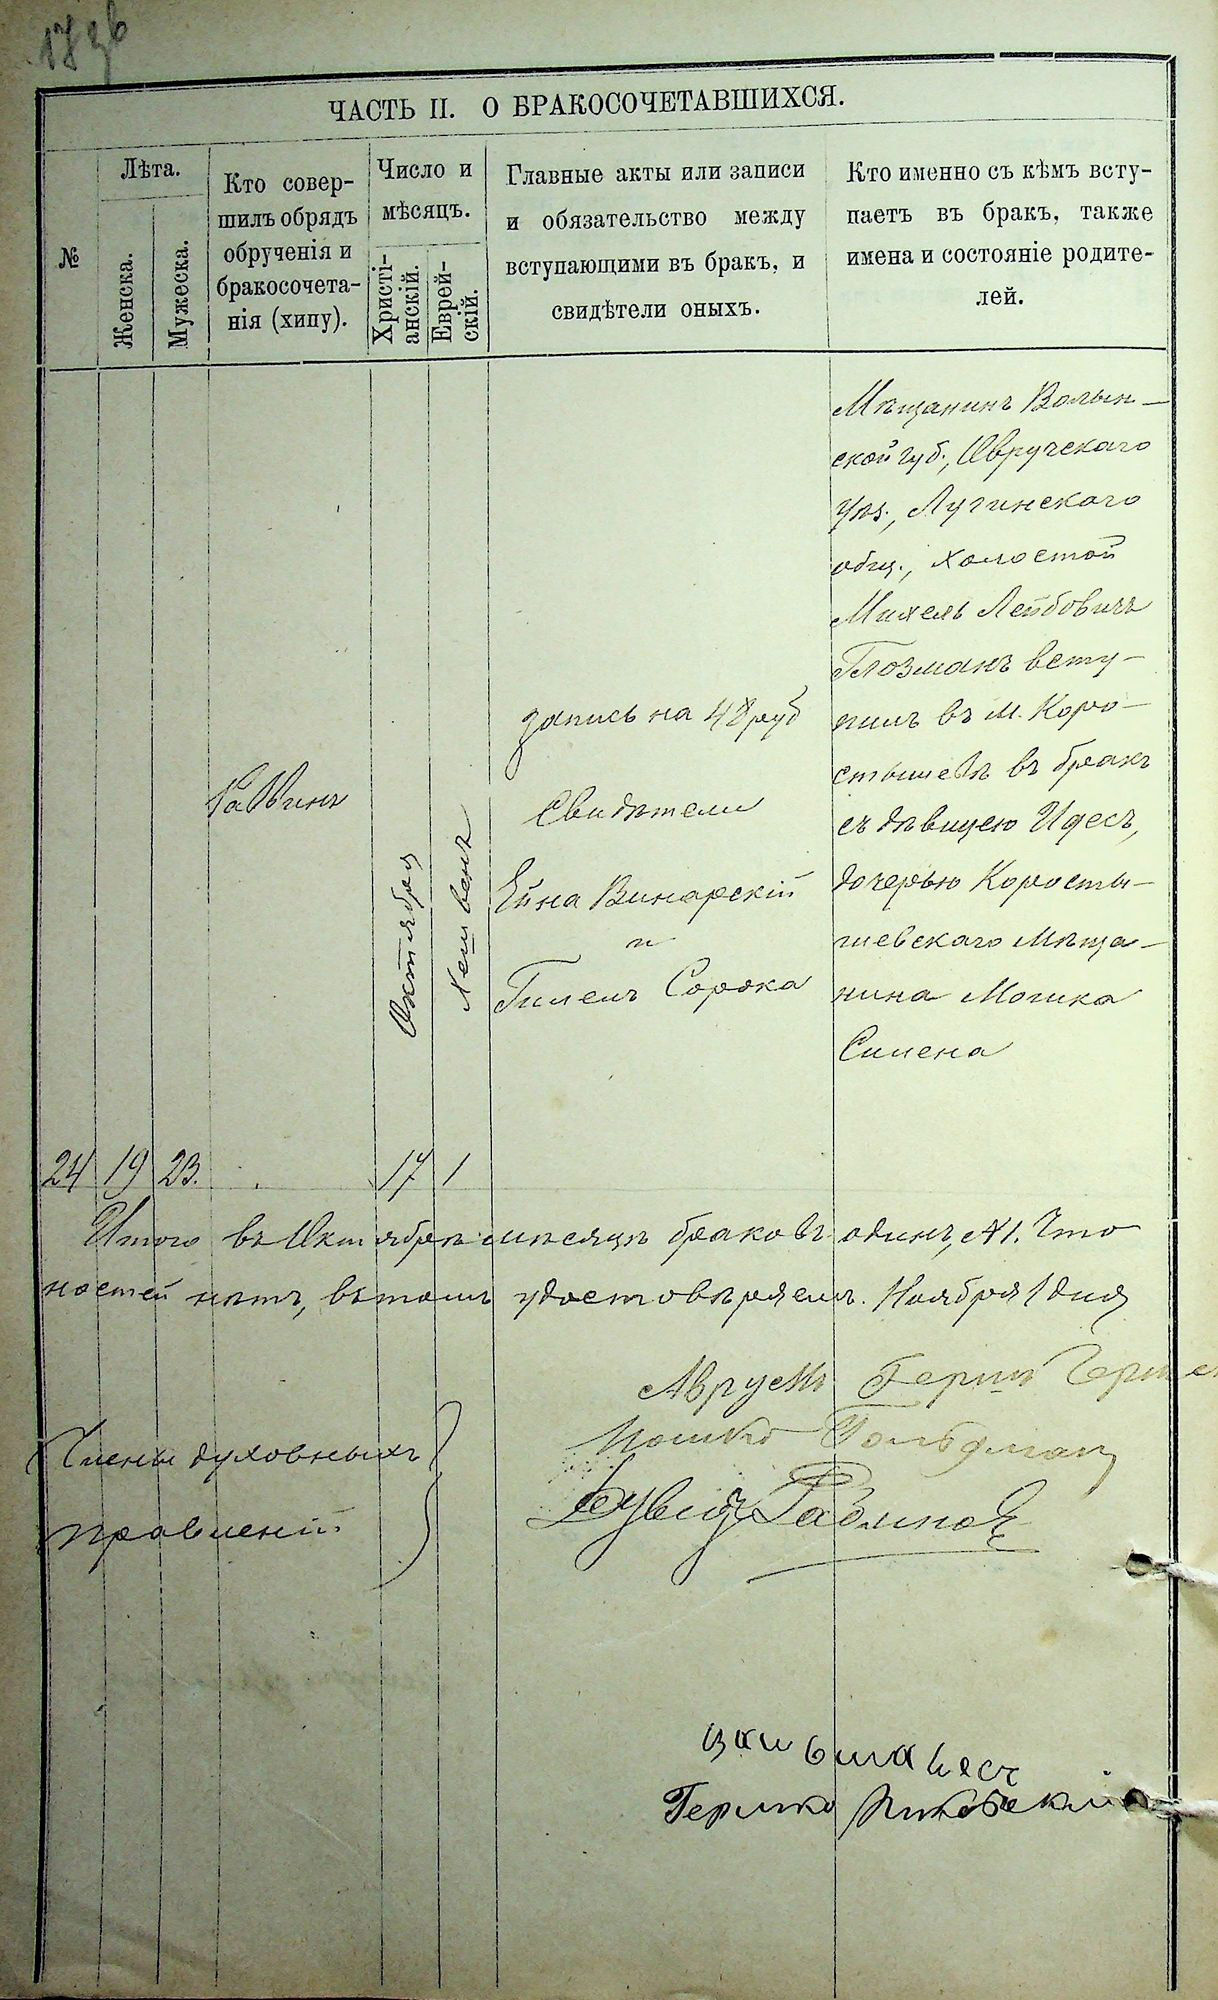 ЧАСТЬ II. О БРАКОСОЧЕТАВШИХСЯ.
№
Лѣта.
Женска.
Мужеска.
Кто совер-
шилъ обрядъ
обрученія и
бракосочета-
нія (хипу).
Число и
мѣсяцъ.
Христі-
анскій.
Еврей-
скій.
Главные акты или записи
и обязательство между
вступающими въ бракъ, и
свидѣтели оныхъ.
Кто именно съ кѣмъ всту-
паетъ въ бракъ, также
имена и состояніе родите-
лей.
24
19
23.
Раввинъ
Октября
17
Хешвенъ
1
запись на 48 руб
Свидѣтели
Ейна Винарскій
и
Гилель Сорока
Мѣщанинъ Волын-
ской губ., Овручскаго
уѣз., Лугинскаго
общ., холостой
Михель Лейбовичъ
Глозманъ всту-
пилъ въ м. Коро-
стышевѣ въ бракъ
съ дѣвицею Идесъ,
дочерью Коросты-
шевскаго мѣща-
нина Мошка
Симена
Итого въ Октябрѣ мѣсяцѣ браковъ одинъ, №1. Что
ностей нѣтъ, въ томъ удостовѣряемъ. Ноября 1 дня
Члены духовныхъ
правленій
Аврумъ Гершъ
Мошко Гольдман
Гершко